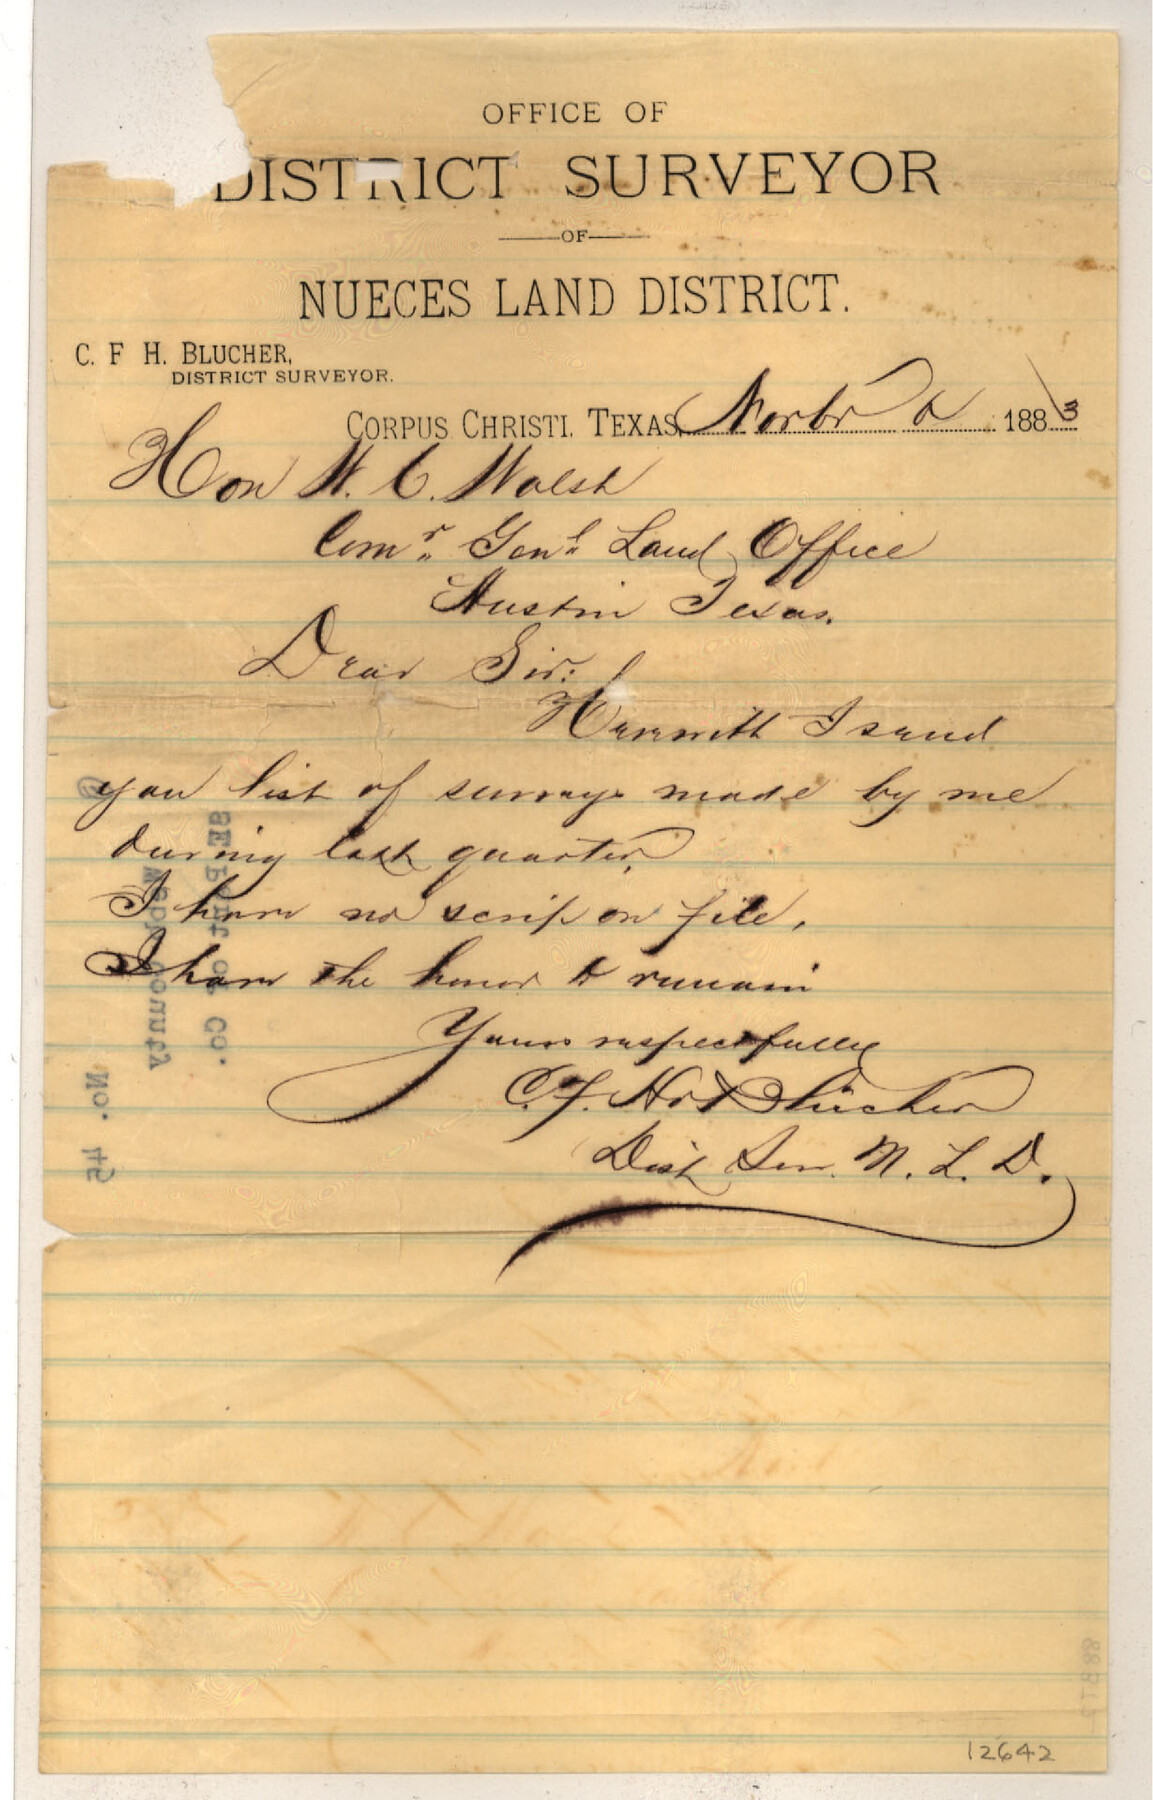 OFFICE OF
DISTRICT SURVEYOR
OF
NUECES LAND DISTRICT.
C. F H. BLUCHER,
DISTRICT SURVEYOR.
CORPUS CHRISTI, TEXAS, Novbr 1883
Hon W. C. Walsh
Comr Genl Land Office
Austin Texas.
Dear Sir:
Herewith I send
you list of surveys made by me
during last quarter,
I have no scrip on file,
I have the honor to remain
Yours respectfully
C. F. H. v Blücher
Dist Sur. N. L. D.
No. 45
12642